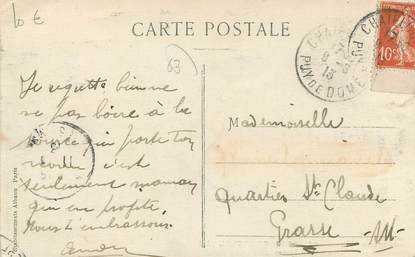 10 €
CARTE POSTALE
63
CHATEL
PUY DE DOME
13
10c
Je regrette bien ne
se pas boire à la
source un porte ton
c'est
seulement maman
qui en profite
nous t'embrassons
Mademoiselle
Quartier Ste Claude
Grasse
AM
Etablissements Albaux Paris